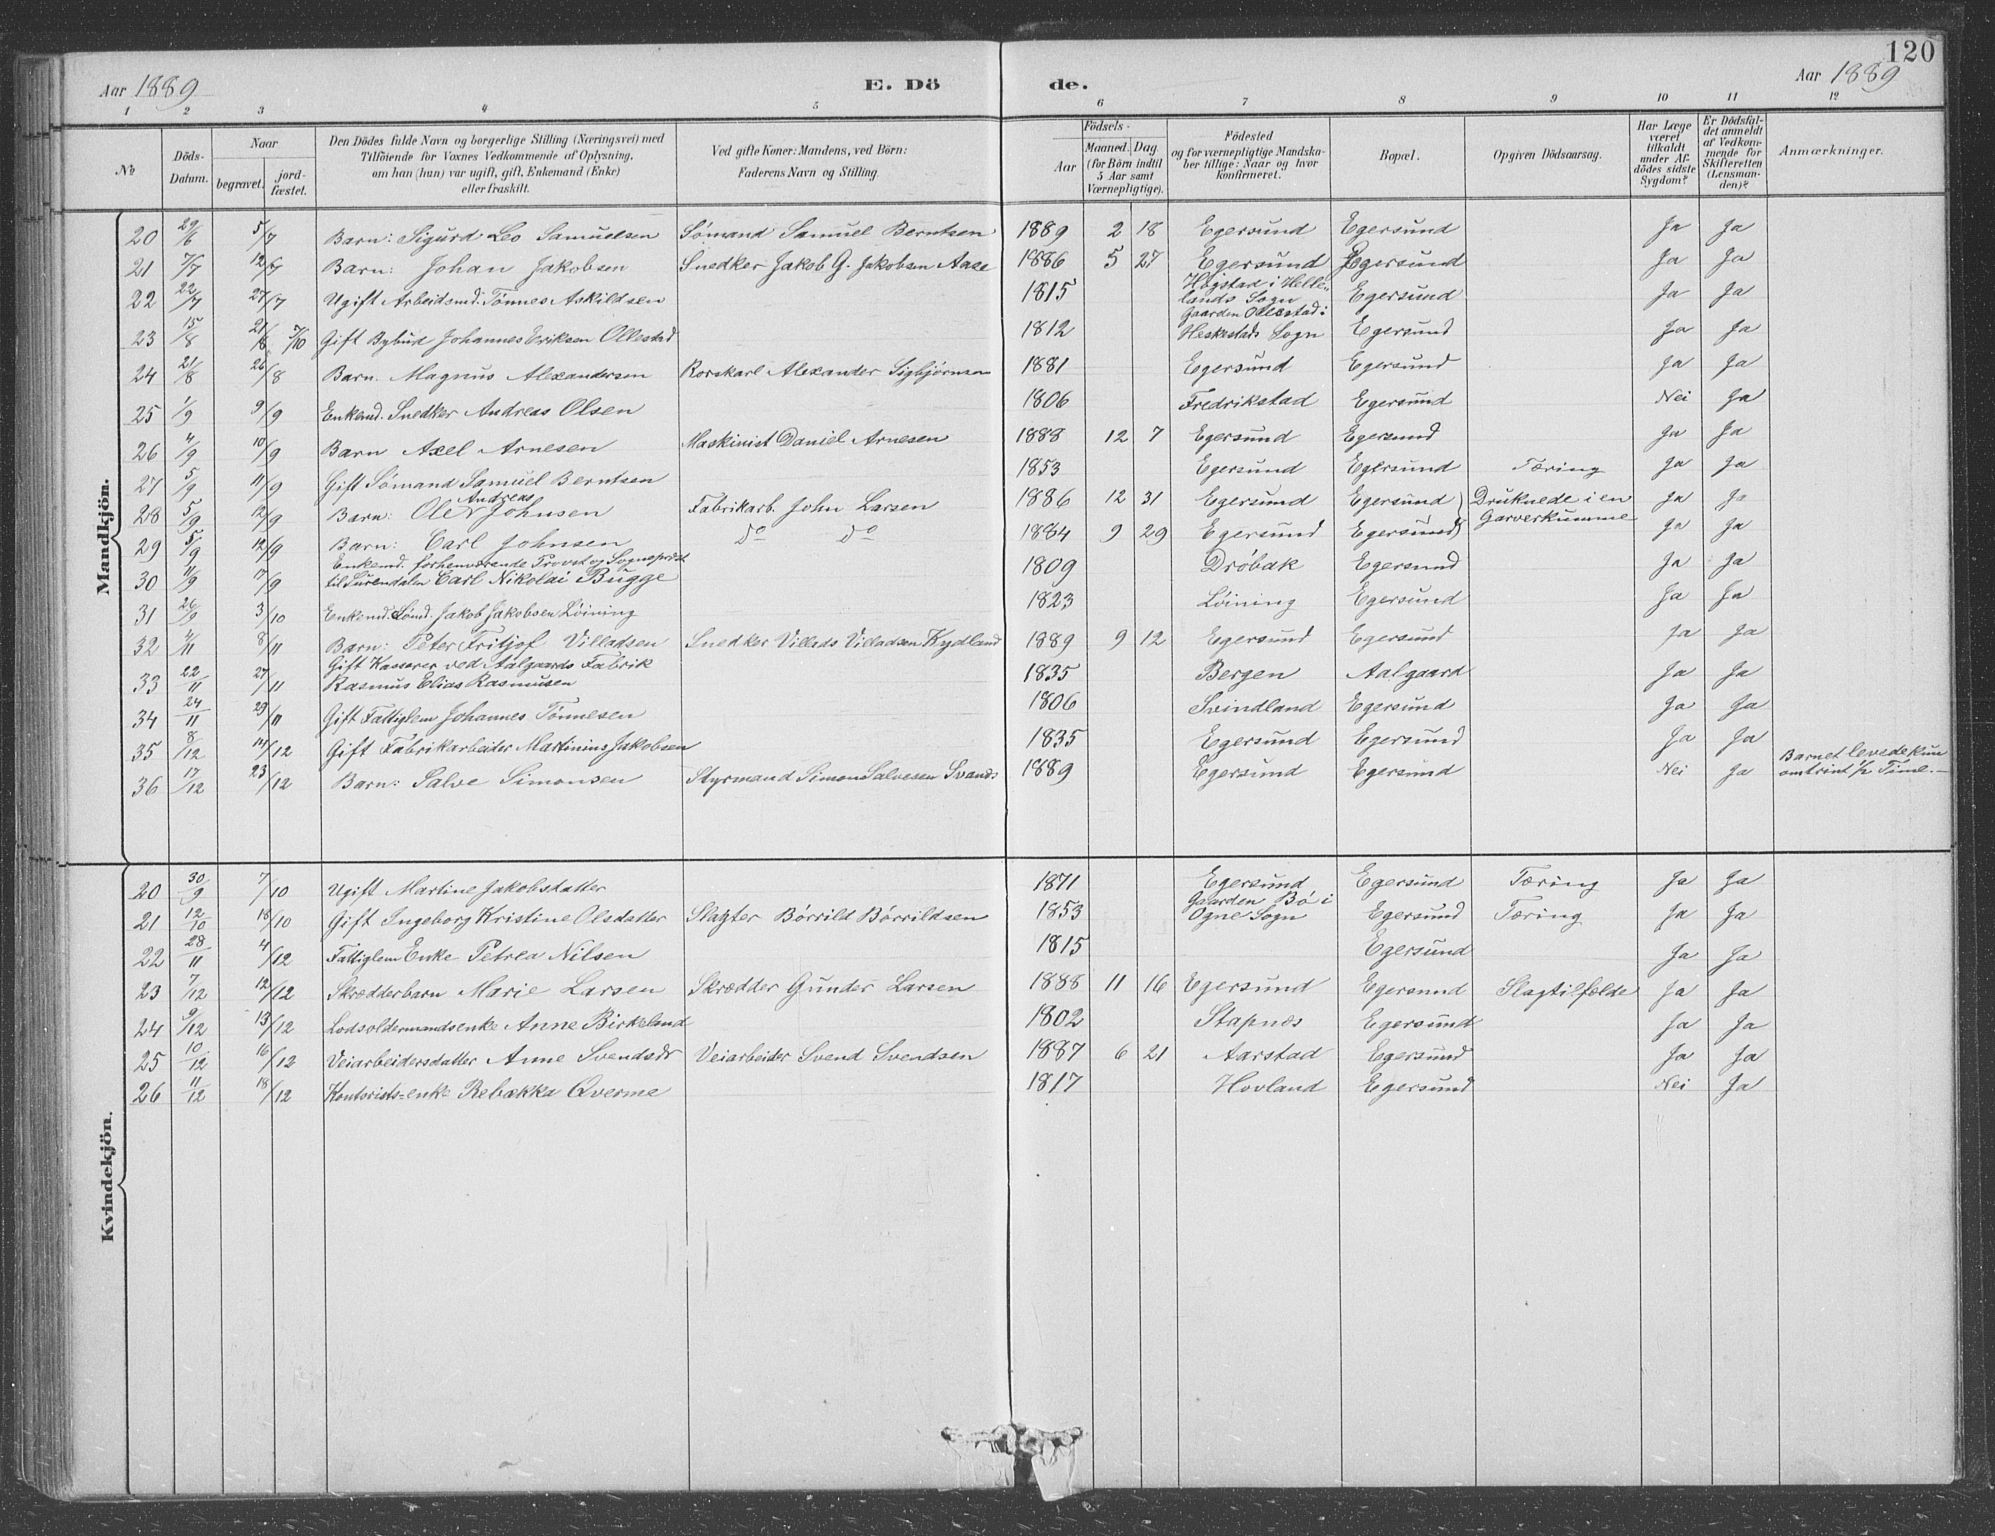 120
Aar 1889 E. Dö de. Aar 1889
1 2 3 4 5 6 7 8 9 10 11 12
№
Döds-Datum.
Naar
begravet.
jord-fæstet.
Den Dödes fulde Navn og borgerlige Stilling (Næringsvei) med
Tilföiende for Voxnes Vedkommende af Oplysning,
om han (hun) var ugift, gift, Enkemand (Enke)
eller fraskilt.
Ved gifte Koner: Mandens, ved Börn:
Faderens Navn og Stilling.
Födsels-
Aar
Maaned. Dag
(for Börn indtil
5 Aar samt
Værnepligtige).
Födested
og for værnepligtige Mandska-
ber tillige: Naar og hvor
konfirmeret.
Bopæl.
Opgiven Dödsaarsag.
Har Læge
været
tilkaldt
under Af-
dödes sidste
Sygdom?
Er Dödsfal-
det anmeldt
af Vedkom-
mende for
Skifteretten
(Lensman-
den)?
Anmærkninger.
Mandkjön.
20 29/6 5/7 Barn: Sigurd Leo Samuelsen Sømand Samuel Berntsen 1889 2 18 Egersund Egersund Ja Ja
21 7/7 12/7 Barn: Johan Jakobsen Snedker Jakob G. Jakobsen Aase 1886 5 27 Egersund Egersund Ja Ja
22 22/7 27/7 Ugift Arbeidsmd. Tønnes Askildsen 1815 Høgstad i Helle-
lands Sogn Egersund Ja Ja
23 15/8 21/8 7/10 Gift Bybud Johannes Eriksen Ollestad 1812 Gaarden Ollestad i
Heskestads Sogn Egersund Ja Ja
24 21/8 26/8 Barn. Magnus Alexandersen Korskarl Alexander Sigbjørnsen 1881 Egersund Egersund Ja Ja
25 1/9 9/9 Enkemd. Snedker Andreas Olsen 1806 Fredrikstad Egersund Nei Ja
26 4/9 10/9 Barn Axel Arnesen Maskinist Daniel Arnesen 1888 12 7 Egersund Egersund Ja Ja
27 5/9 11/9 Gift Sømand Samuel Berntsen 1853 Egersund Egersund Tæring Ja Ja
28 5/9 12/9 Barn: Ole Andreas Johnsen Fabrikarb. John Larsen 1886 12 31 Egersund Egersund Druknede i en
Garverkumme Ja Ja
29 5/9 12/9 Barn: Carl Johnsen do do 1884 9 29 Egersund Egersund Ja Ja
30 11/9 17/9 Enkemd. forhenværende Provst og Sogneprest
til Surendalen Carl Nikolai Bugge 1809 Drøbak Egersund Ja Ja
31 26/9 3/10 Enkemd. Sømd. Jakob Jakobsen Løining 1823 Løining Egersund Ja Ja
32 4/11 8/11 Barn: Peter Fritjof Villadsen Snedker Villads Villadsen Kydland 1889 9 12 Egersund Egersund Ja Ja
33 22/11 27/11 Gift Kasserer ved Aalgaards Fabrik
Rasmus Elias Rasmusen 1835 Bergen Aalgaard Ja Ja
34 24/11 29/11 Gift Fattiglem Johannes Tønnesen 1806 Svindland Egersund Ja Ja
35 8/12 14/12 Gift Fabrikarbeider Martinius Jakobsen 1835 Egersund Egersund Ja Ja
36 17/12 23/12 Barn: Salve Simonsen Styrmand Simon Salvesen Svands 1889 Egersund Egersund Nei Ja Barnet levede kun
omtrint 1/2 Time.
Kvindekjön.
20 30/9 7/10 Ugift Martine Jakobsdatter 1871 Egersund Egersund Tæring Ja Ja
21 12/10 18/10 Gift Ingeborg Kristine Olsdatter Slagter Børrild Børrildsen 1853 Gaarden Bø i
Ogne Sogn Egersund Tæring Ja Ja
22 28/11 4/12 Fattiglem Enke Petrea Nilsen 1815 Egersund Ja Ja
23 7/12 12/12 Skrædderbarn Marie Larsen Skrædder Gunder Larsen 1888 11 16 Egersund Egersund Slagtilfælde Ja Ja
24 9/12 13/12 Lodsoldermandsenke Anne Birkeland 1802 Stapnæs Egersund Ja Ja
25 10/12 16/12 Veiarbeidersdatter Anne Svendsdr Veiarbeider Svend Svendsen 1887 6 21 Aarstad Egersund Ja Ja
26 11/12 18/12 Kontorists-enke Rebækka Qverme 1817 Hovland Egersund Nei Ja